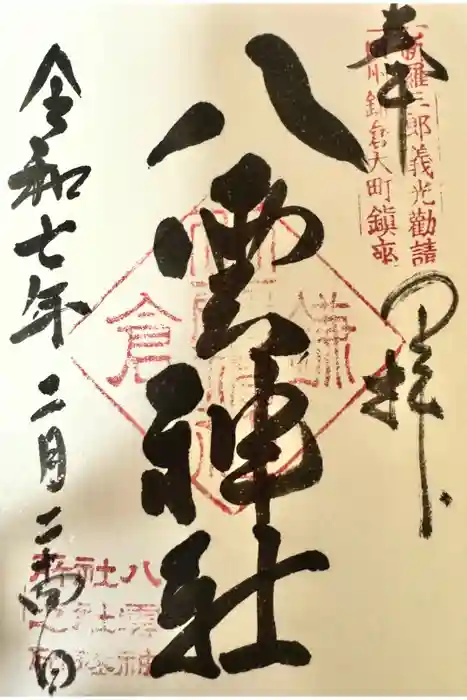 奉拝
新羅三郎義光勸請
相州鎌倉大町鎮座
八雲神社
鎌倉
令和七年二月二十四日
八雲神
社社務
所之印